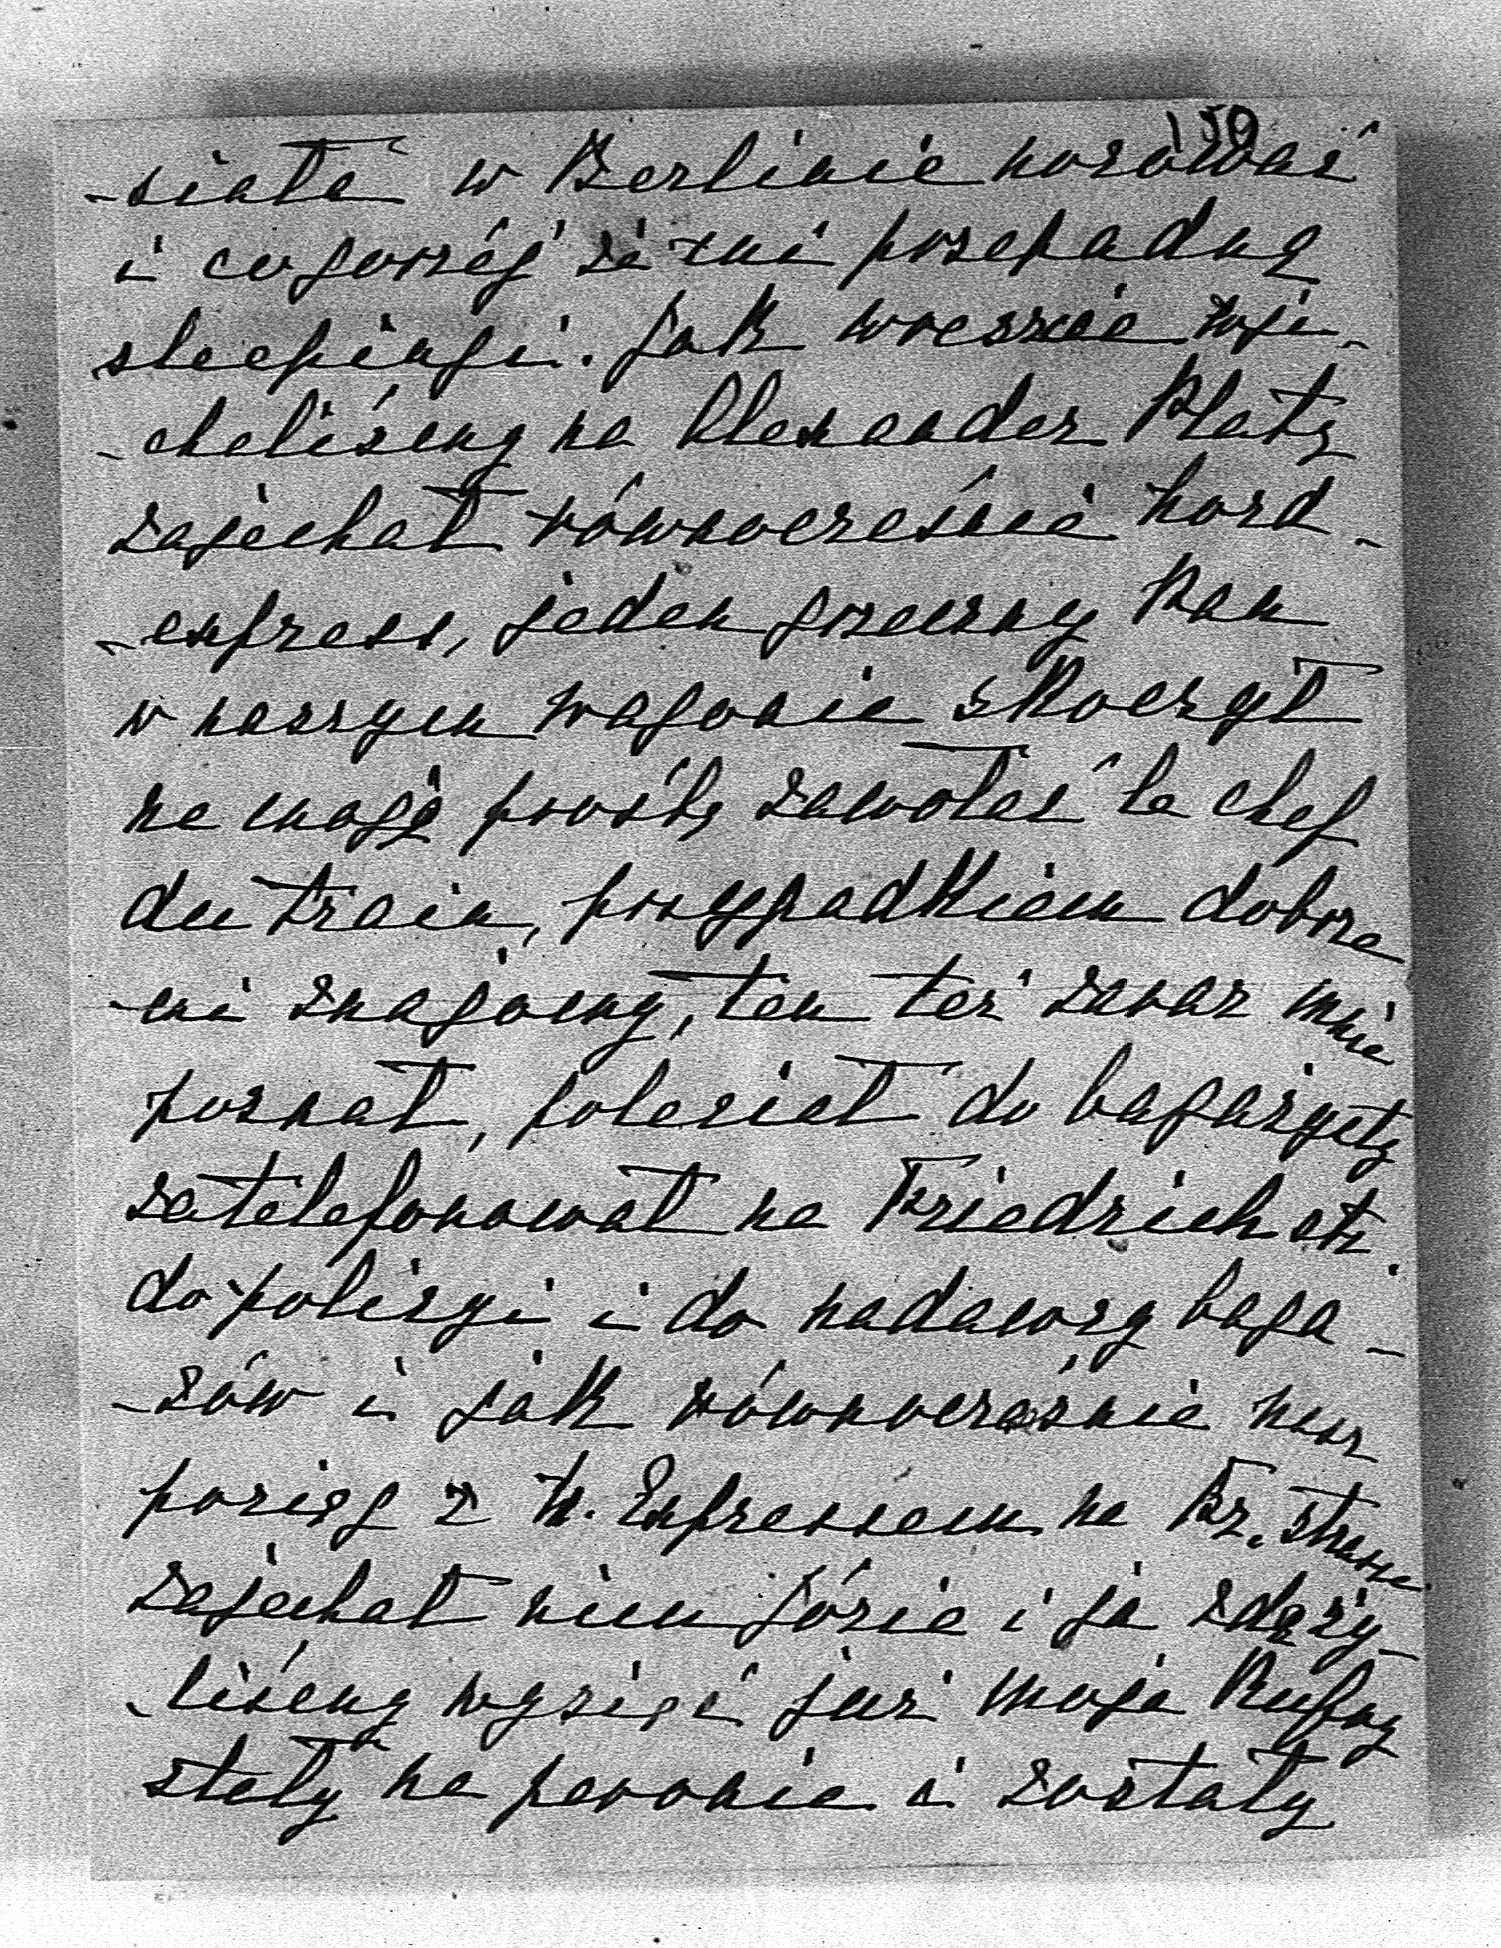 159
-siała w Berlinie nocować
i co gorzéj że mi przepadną
sleepingi. Jak wreszcie wje-
-chaliśmy na Alexander Platz
zajechał równocześnie Nord-
-express, jeden grzeczny Pan
w naszym wagonie skoczył
na moją prośbę zawołać le chef
du train, przypadkiem dobrze
-mi znajomy, ten też zaraz mnie
poznał, poleciał do bagaży
zatelefonował na Friedrichstr.
do policyi i do nadawczy baga-
-żów i jak równocześnie nasz
pociąg z N. Expressem na Fr. Strasse
zajechał nim Józia i ja zdąży-
-liśmy wysiąść już moje Kufry
stały na peronie i zostały